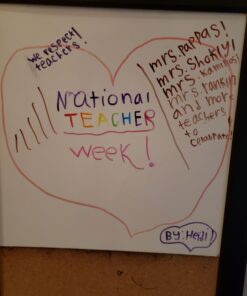 we RESPECT
teachers!
National
TEACHER
week!
mrs. PaPPas!
mrs. Shokly!
mrs. Kaminos!
mrs. rankin
and more
teachers
to
BY: Heidi